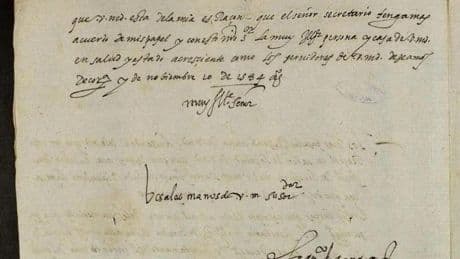 que v. md. esta de la mia es Raçon – que el señor secretario tenga mas
acuerdo de mis papel y con esto nro sor la muy Ille persona y casa de v. md.
en salud y estado acresciente como los servidores de v. md. deseamos
de y de noviembre 10 de 1584 as
muy Ille señor
besa las manos de v. m su sdor